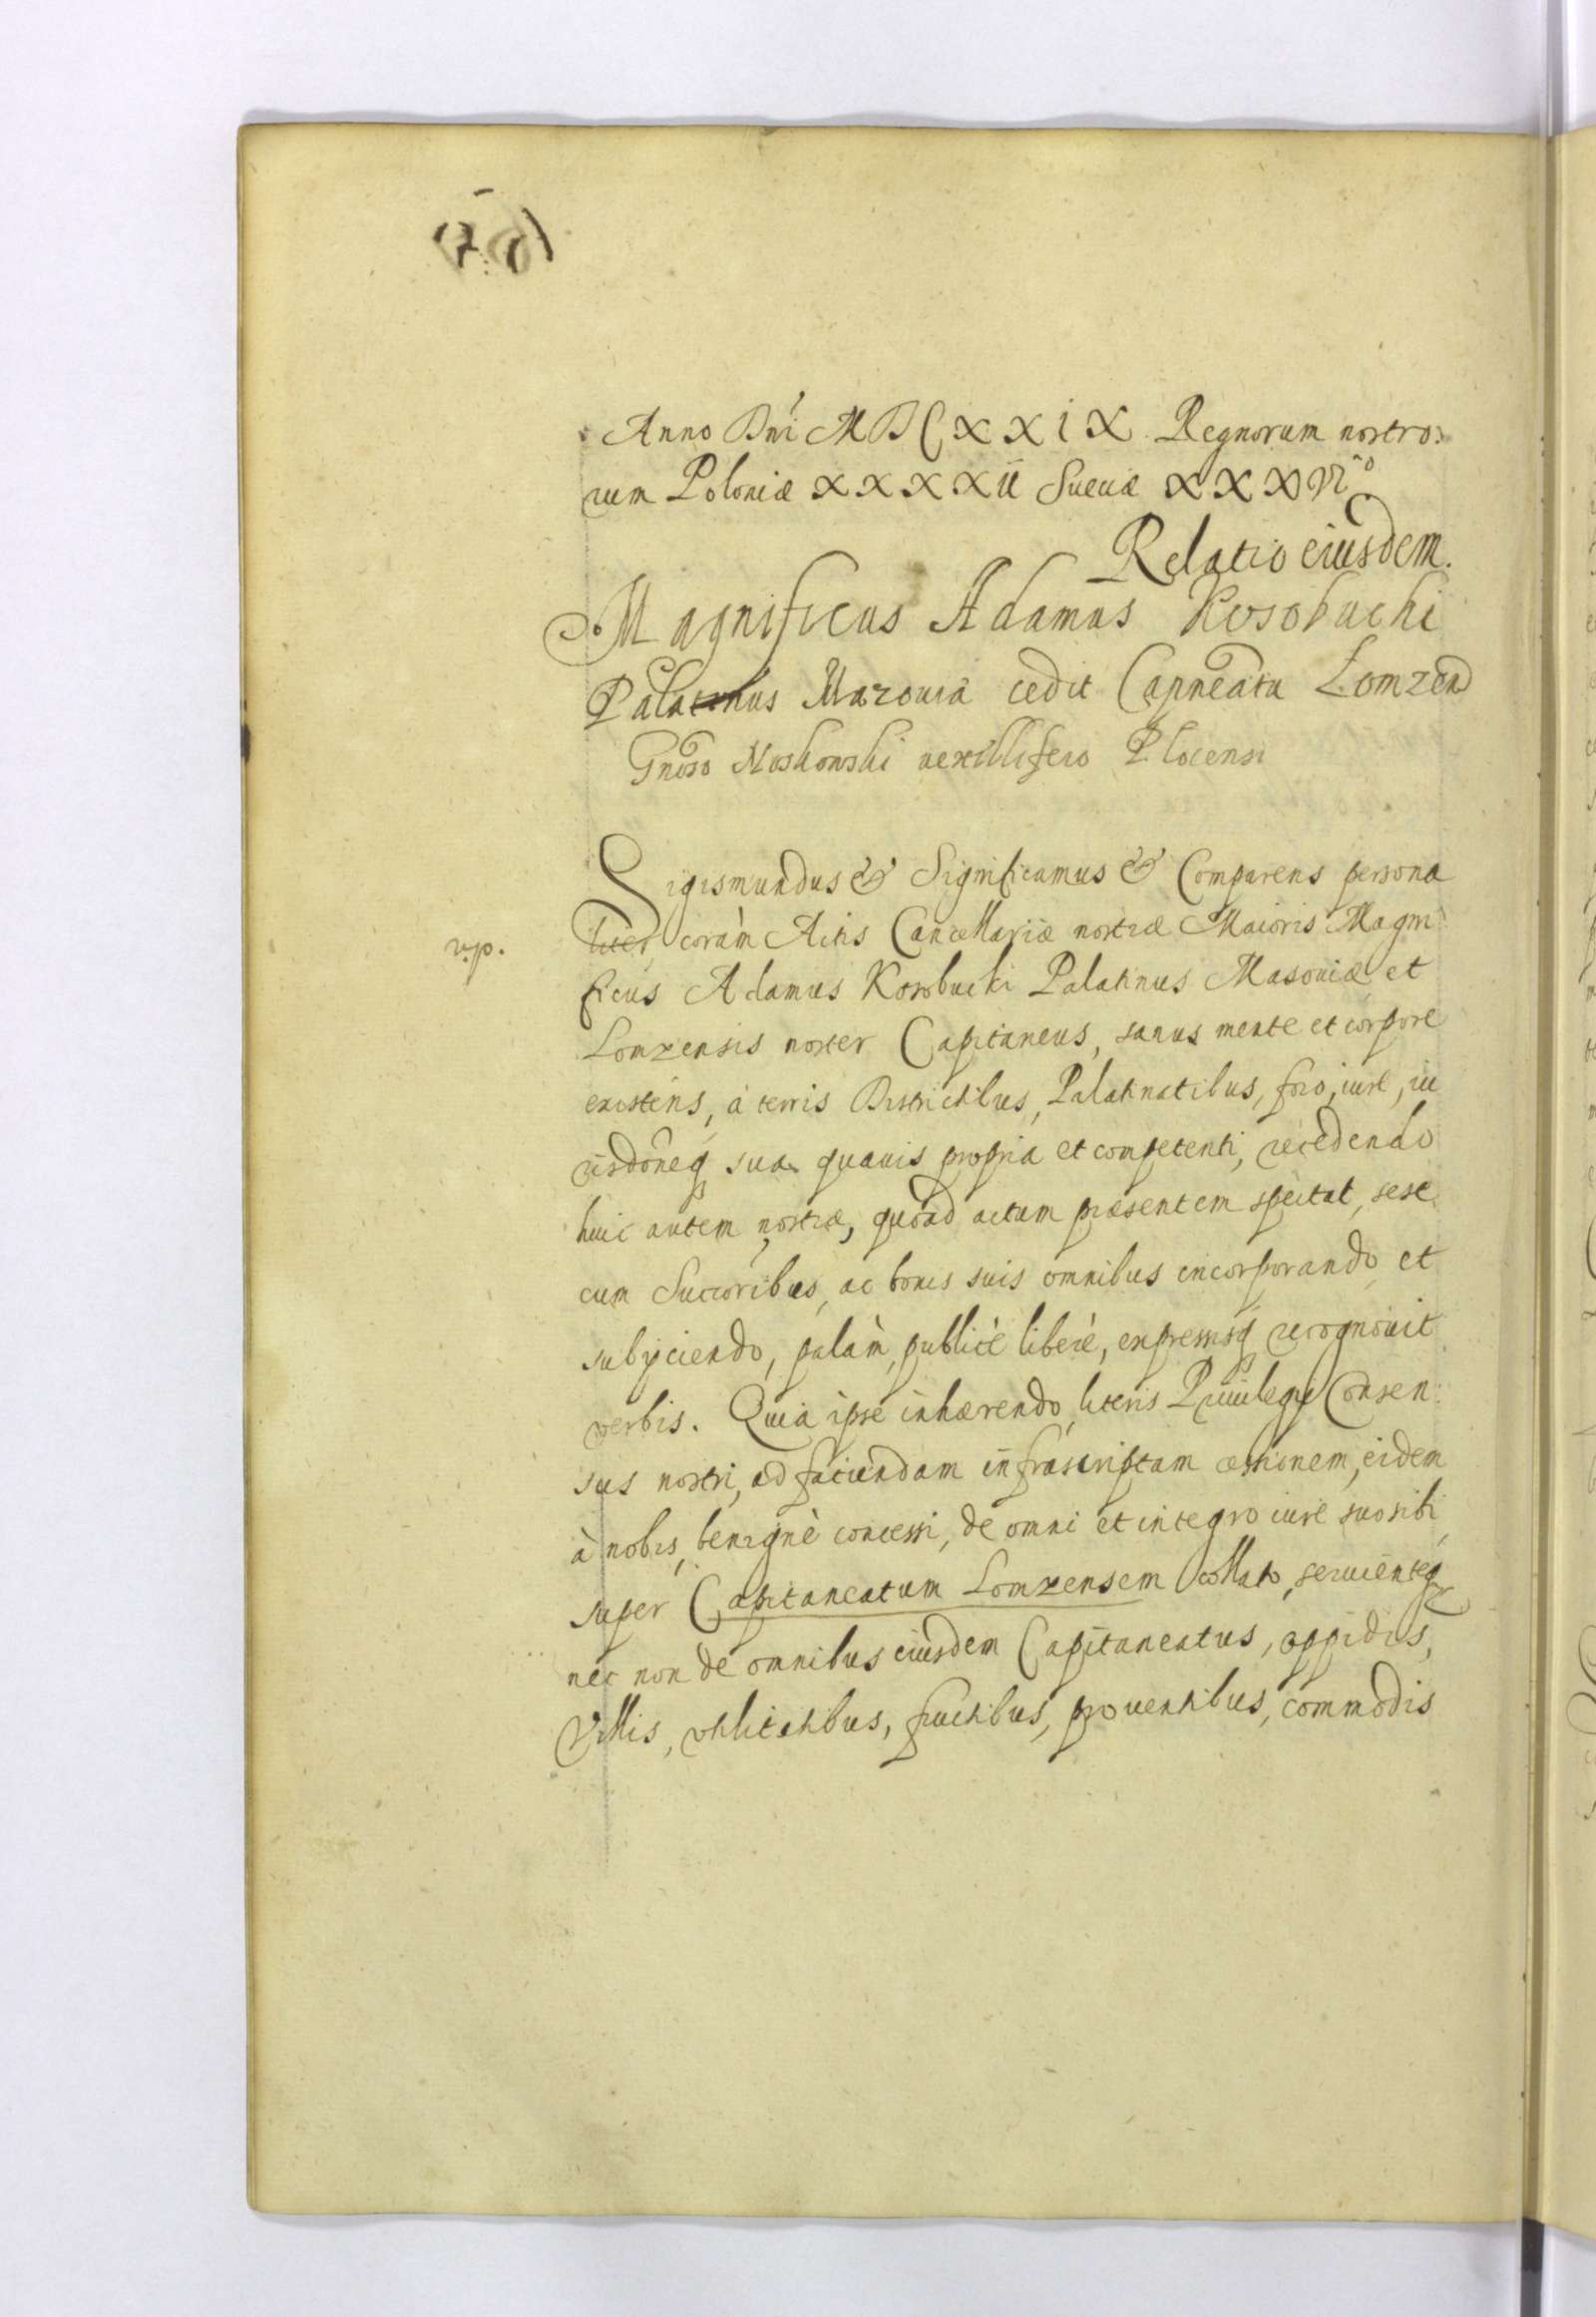 Anno Dni MDCXXiX Regnorum nostro:
rum Poloniæ XXXXii Sueciæ XXXVI^to
Relatio eiusdem.
Magnificus Adamus Kosobucki
Palatinus Mazouiæ cedit Capneatu Lomzen
Gnoso Noskowski vexillifero Plocensi
Sigismundus & Significamus & Comparens persona
v.p.
liter coràm Actis Cancellariæ nostræ Maioris Magni
ficus Adamus Kosobucki Palatinus Masoviæ et
Lomzensis noster Capitaneus, sanus mente et corpore
existens, à terris Districtibus, Palatinatibus, foro, iure, iu
risdoneq sua quavis propria et competenti, recedendo
huic autem nostræ, quoad actum præsentem spectat, sese
cum Succoribus, ac bonis suis omnibus incorporando et
subyciendo, palàm, publicè liberè, expressisq recognovit
verbis. Quia ipse inhærendo literis Privilegy Consen:
sus nostri, ad faciendam infrascriptam cessionem, eidem
à nobis, benignè concessi, de omni et integro iure suo sibi
super Capitaneatum Lomzensem collato, serviente q
nec non de omnibus eiusdem Capitaneatus, oppidis,
Villis, vtilitatibus, fructibus, proventibus, commodis